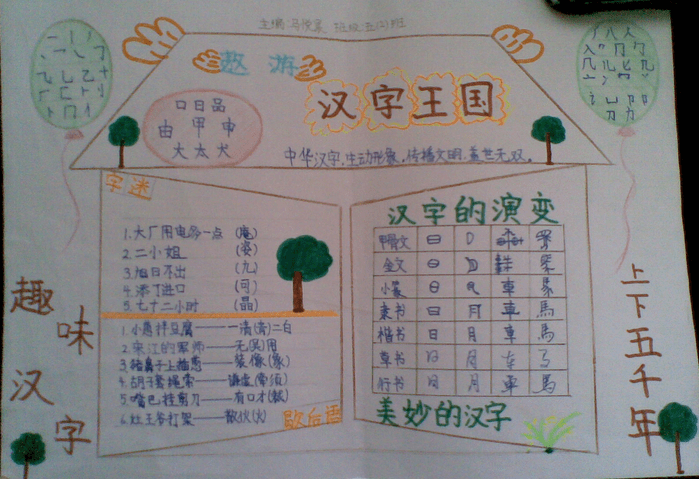 主编:马俊 班级:五(2)班
遨游
汉字王国
口日品
由甲申
大太犬
中华汉字,生动形象,传播文明,盖世无双。
字迷
1.大厂用电多一点 (庵)
2.二小姐 (姿)
3.旭日不出 (九)
4.添丁进口 (可)
5.七十二小时 (晶)
1.小葱拌豆腐——一清(青)二白
2.宋江的军师——无(吴)用
3.猪鼻子上插葱——装像(象)
4.胡子套绳索——谦虚(牵须)
5.嘴巴挂剪刀——有口才(裁)
6.灶王爷打架——散伙(火)
歇后语
汉字的演变
甲骨文
金文
小篆 車
隶书 日 月 車 馬
楷书 日 月 車 馬
草书 日 月
行书 日 月 車 馬
美妙的汉字
趣味汉字
上下五千年